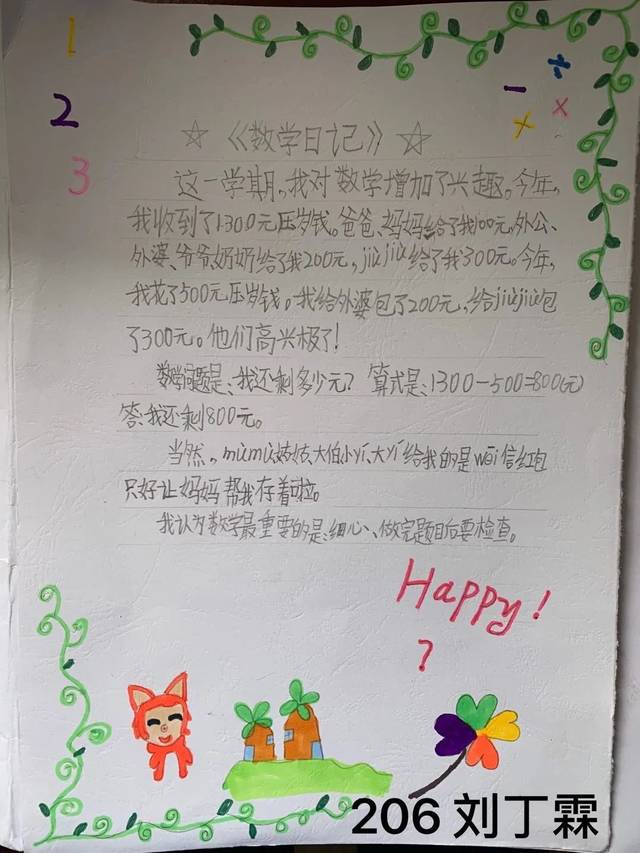 1
2
3
÷
-
×
+
☆《数学日记》☆
这一学期，我对数学增加了兴趣。今年，
我收到了1300元压岁钱。爸爸、妈妈给了我100元。外公、
外婆、爷爷奶奶给了我200元，jiù jiu给了我300元。今年，
我花了500元压岁钱。我给外婆包了200元，给jiù jiu包
了300元。他们高兴极了！
数学问题是：我还剩多少元？ 算式是：1300-500=800(元)
答：我还剩800元。
当然，mùmu、姑姑、大伯小yí、大yí给我的是wēi信红包
只好让妈妈帮我存着啦。
我认为数学最重要的是：细心、做完题目后要检查。
Happy!
?
206 刘丁霖